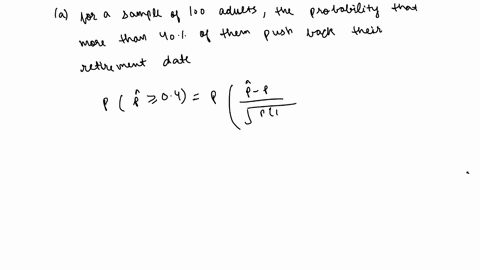 (a) for a sample of 100 adults, the probability that
more than 40.% of them push back their
retirement date
P ( p̂ ≥ 0.4) = P ( p̂ - p / √ p(1